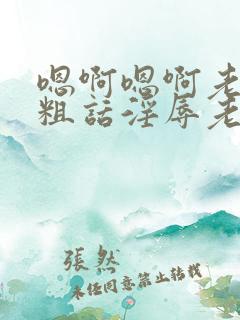 嗯啊嗯啊老
粗話淫辱老
張然
未经同意禁止转载